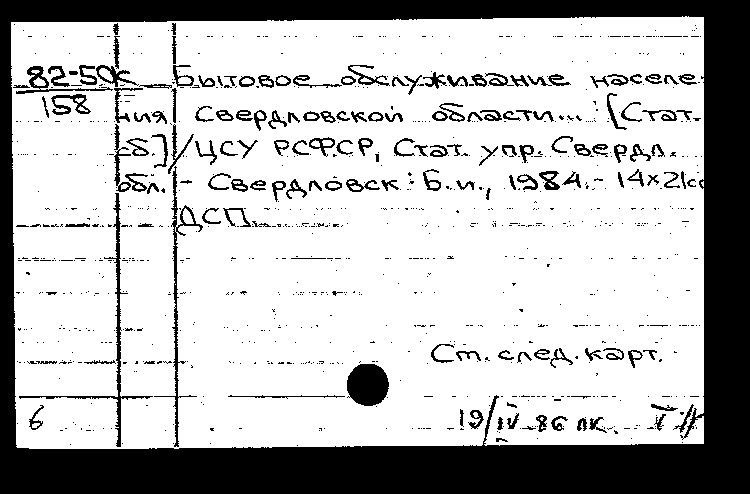 82-50к Бытовое обслуживание населе-
158 ния Свердловской области... : [Стат.
сб.] / ЦСУ РСФСР, Стат. упр. Свердл.
обл. - Свердловск : Б.и., 1984. - 14×21с
ДСП.
Ст. след. карт.
6 19/IV-86 пк.